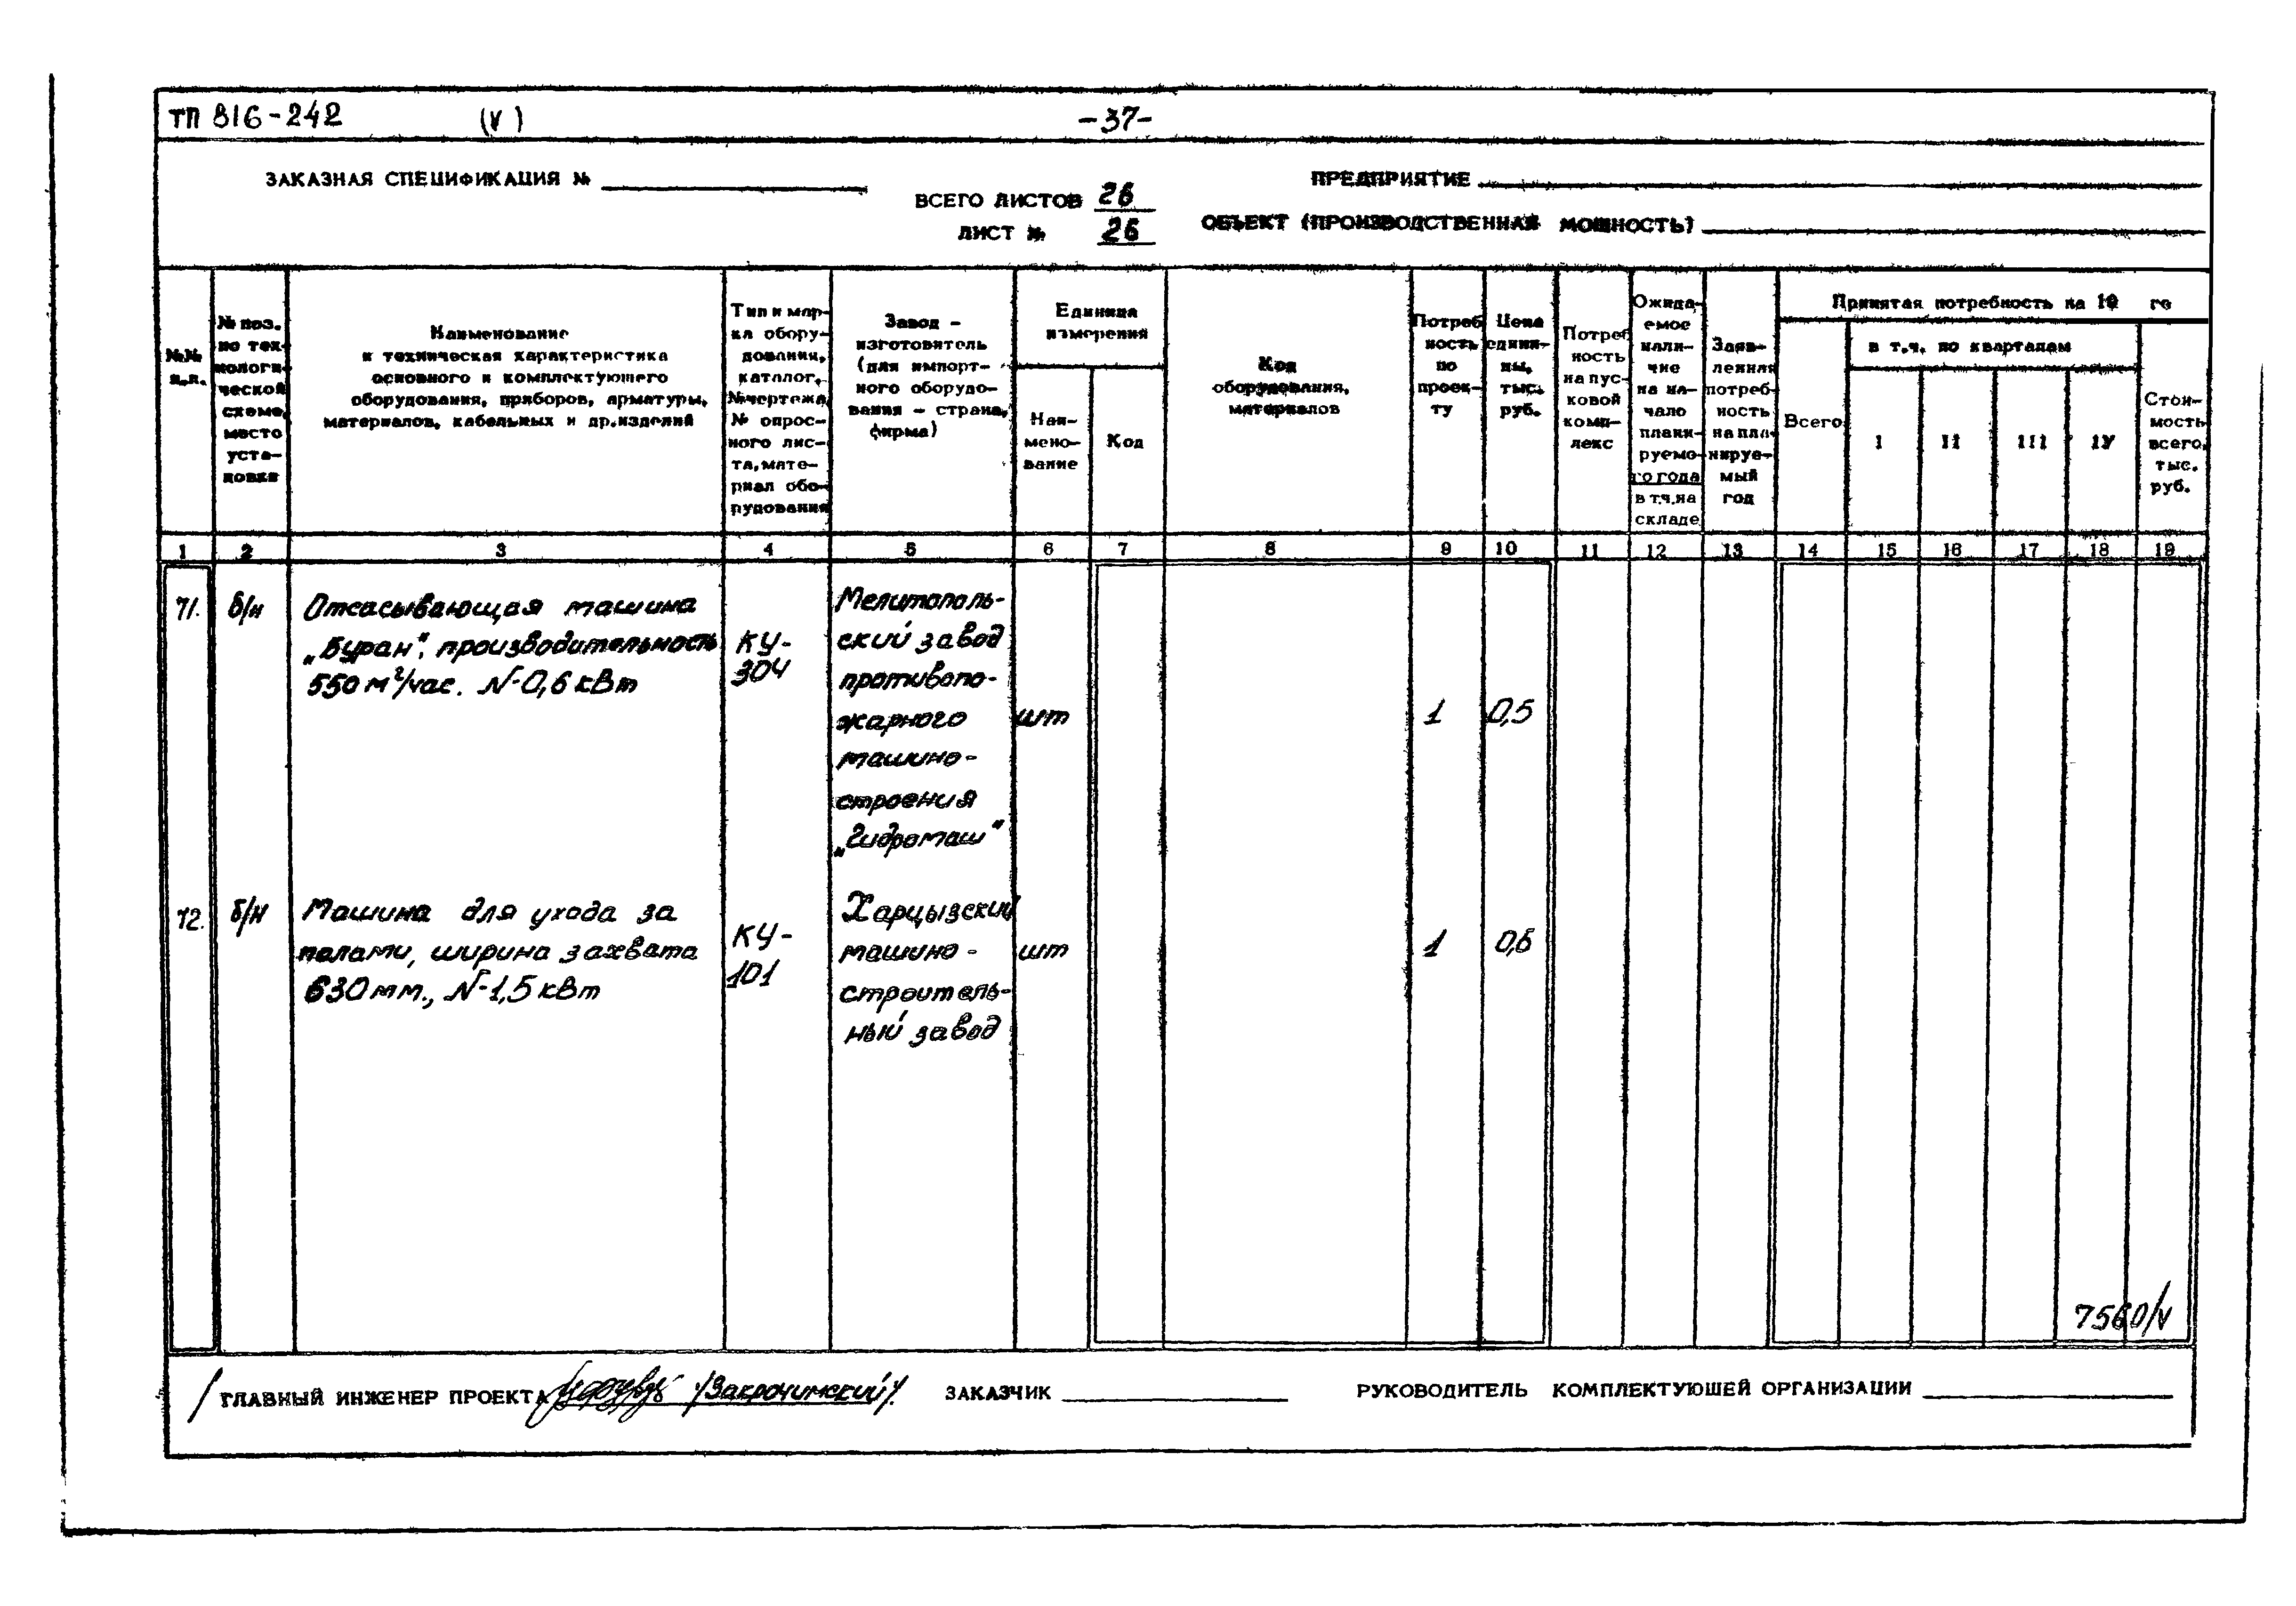 ТП 816-242 (V) -37-
ЗАКАЗНАЯ СПЕЦИФИКАЦИЯ №
ВСЕГО ЛИСТОВ 26
ЛИСТ № 26
ПРЕДПРИЯТИЕ
ОБЪЕКТ (ПРОИЗВОДСТВЕННАЯ МОШНОСТЬ)
№№
п.п.
№ поз.
по тех-
нологи-
ческой
схеме,
место
уста-
новки
Наименование
и техническая характеристика
основного и комплектующего
оборудования, приборов, арматуры,
материалов, кабельных и др.изделий
Тип и мар-
ка обору-
дования,
каталог,
№чертежа,
№ опрос-
ного лис-
та, мате-
риал обо-
рудования
Завод -
изготовитель
(для импорт-
ного оборудо-
вания - страна,
фирма)
Единица
измерения
Наи-
мено-
вание
Код
Код
оборудования,
материалов
Потреб
ность
по
проек-
ту
Цена
едини-
цы,
тыс.
руб.
Потреб
ность
на пус-
ковой
комп-
лекс
Ожида-
емое
нали-
чие
на на-
чало
плани-
руемо-
го года
в т.ч.на
складе
Заяв-
ленная
потреб-
ность
на пла-
нируе-
мый
год
Принятая потребность на 19 го
Всего
в т.ч. по кварталам
I II III IУ
Стои-
мость
всего,
тыс.
руб.
1 2 3 4 5 6 7 8 9 10 11 12 13 14 15 16 17 18 19
71. б/н Отсасывающая машина
„Буран“, производительность
550 м²/час. N-0,6 кВт
КУ-
304
Мелитополь-
ский завод
противопо-
жарного
машино-
строения
„Гидромаш“
шт 1 0,5
72. б/н Машина для ухода за
полами, ширина захвата
630 мм., N-1,5 кВт
КУ-
101
Харцызский
машино-
строитель-
ный завод
шт 1 0,6
7560/V
ГЛАВНЫЙ ИНЖЕНЕР ПРОЕКТА /Закрочимский/. ЗАКАЗЧИК РУКОВОДИТЕЛЬ КОМПЛЕКТУЮШЕЙ ОРГАНИЗАЦИИ